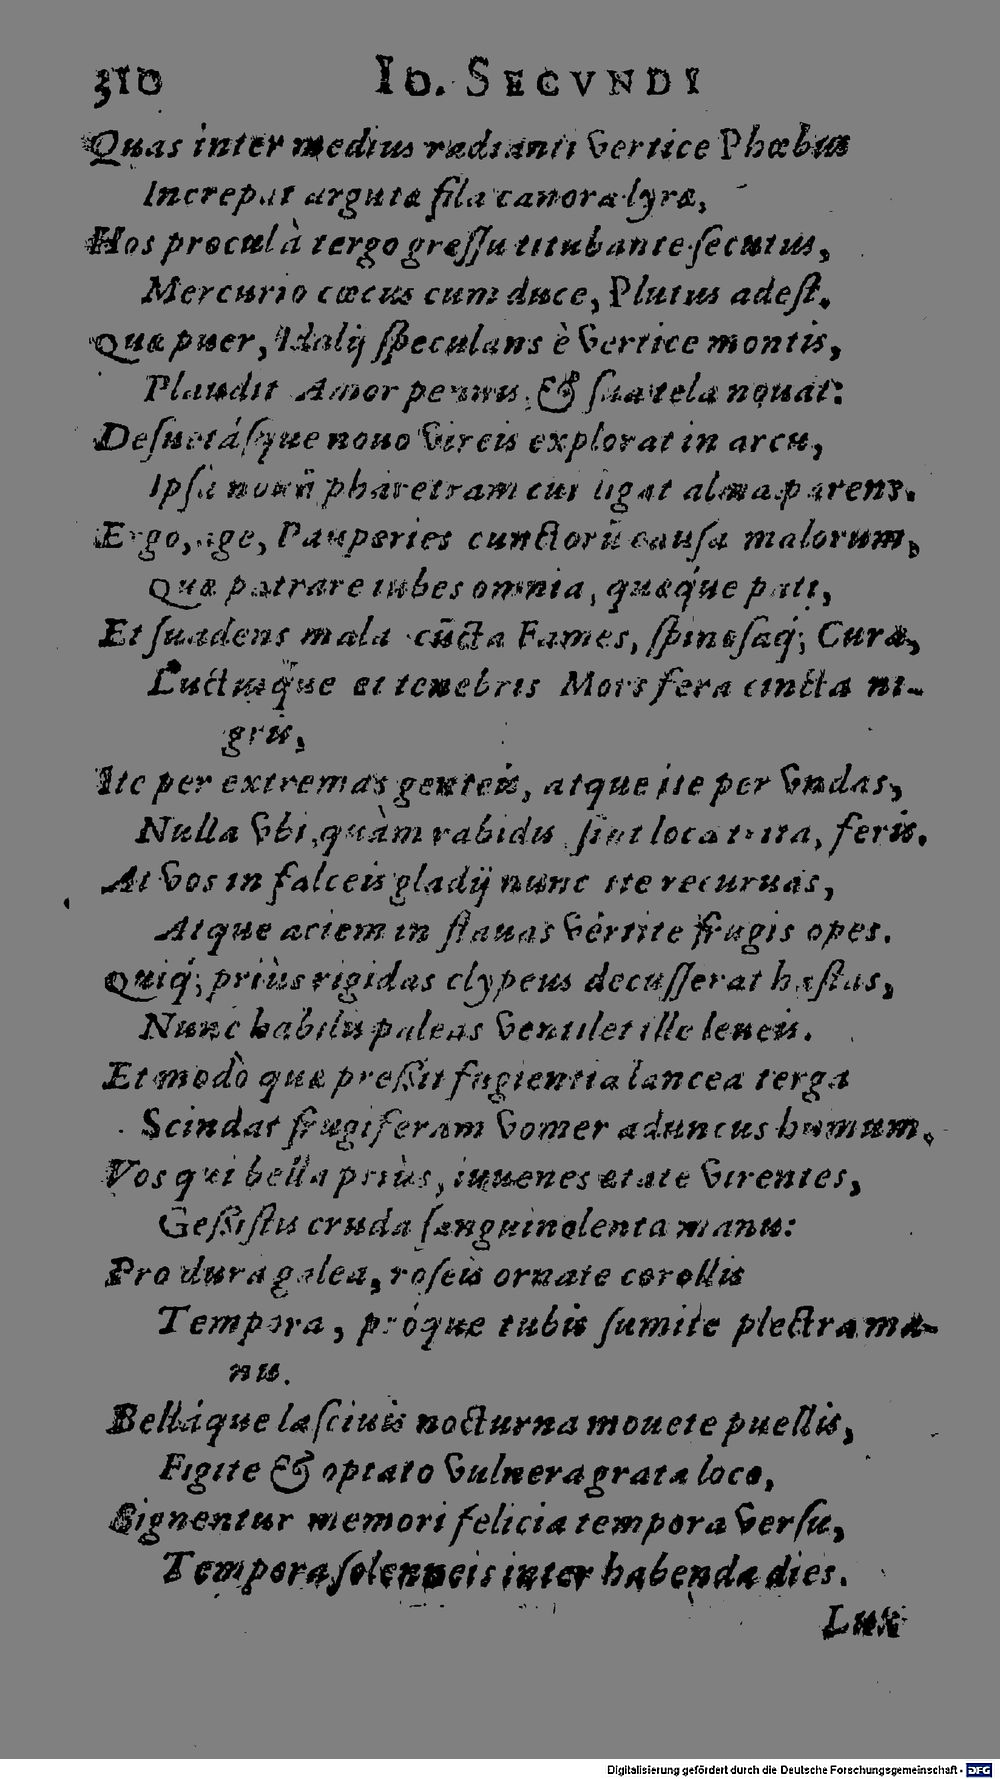 310 IO. SECVNDI
Quas inter medius radianti vertice Phœbus
Increpat argutæ fila canora lyræ,
Hos procul à tergo greſſu titubante ſecutus,
Mercurio cœcus cum duce, Plutus adeſt.
Quæ puer, Idalij ſpeculans è vertice montis,
Plaudit Amor pennis, & ſua tela nouat:
Deſuetáſque nouo vireis explorat in arcu,
Ipſa nouā pharetram cui ligat alma parens.
Ergo, age, Pauperies cunctorū cauſa malorum,
Quæ patrare iubes omnia, quæq́ue pati,
Et ſuadens mala cūcta Fames, ſpinoſaq́; Curæ,
Luctuſq́ue et tenebris Mors fera cincta ni-
gris,
Ite per extremas genteis, atque ite per vndas,
Nulla vbi, quàm rabidis ſint loca trita, feris.
At vos in falceis gladij nunc ite recuruas,
Atque aciem in flauas vértite frugis opes.
Quiq́; priùs rigidas clypeus decuſſerat haſtas,
Nunc habilis paleas ventilet ille leueis.
Et modò quæ preßit fugientia lancea terga
Scindat frugiferam vomer aduncus humum.
Vos qui bella priùs, iuuenes ætate virentes,
Geßiſtis cruda ſanguinolenta manu:
Pro dura galea, roſeis ornate corollis
Tempora, próque tubis ſumite plectra ma-
nu.
Belláque laſciuis nocturna mouete puellis,
Figite & optato vulnera grata loco,
Signentur memori felicia tempora verſu,
Tempora ſolenneis inter habenda dies.
Lux
Digitalisierung gefördert durch die Deutsche Forschungsgemeinschaft - DFG